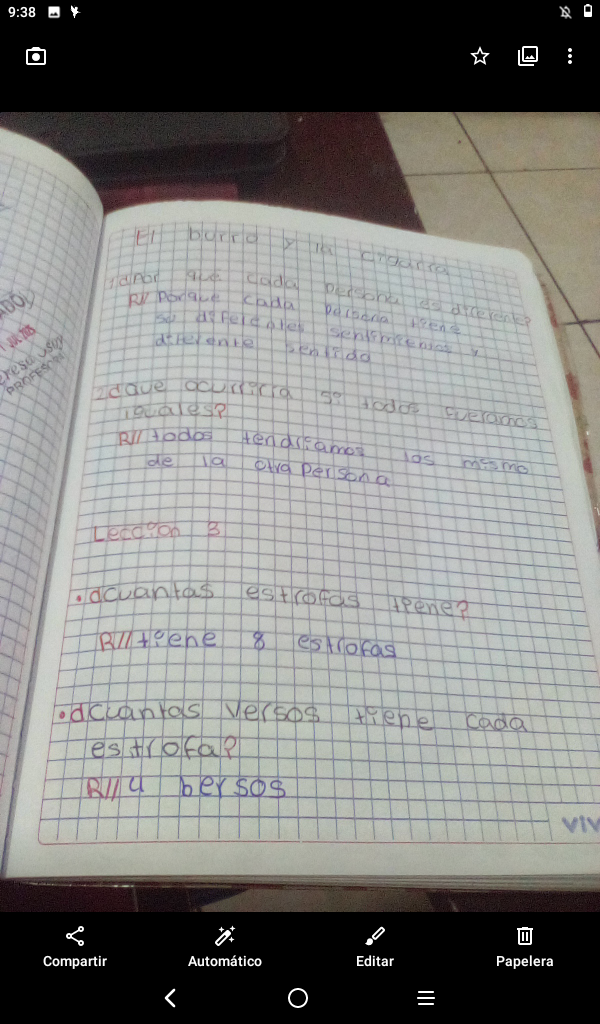 9:38
El burro y la
1¿Por que cada persona es diferente?
R// Porque cada persona tiene
su diferentes sentimientos y
diferente sentido
2¿que ocurriria si todos fueramos
iguales?
R// todos tendriamos los mismo
de la otra persona
Lección 3
•¿cuantas estrofas tiene?
R// tiene 8 estrofas
•¿cuantas versos tiene cada
estrofa?
R// 4 bersos
VIV
Compartir
Automático
Editar
Papelera